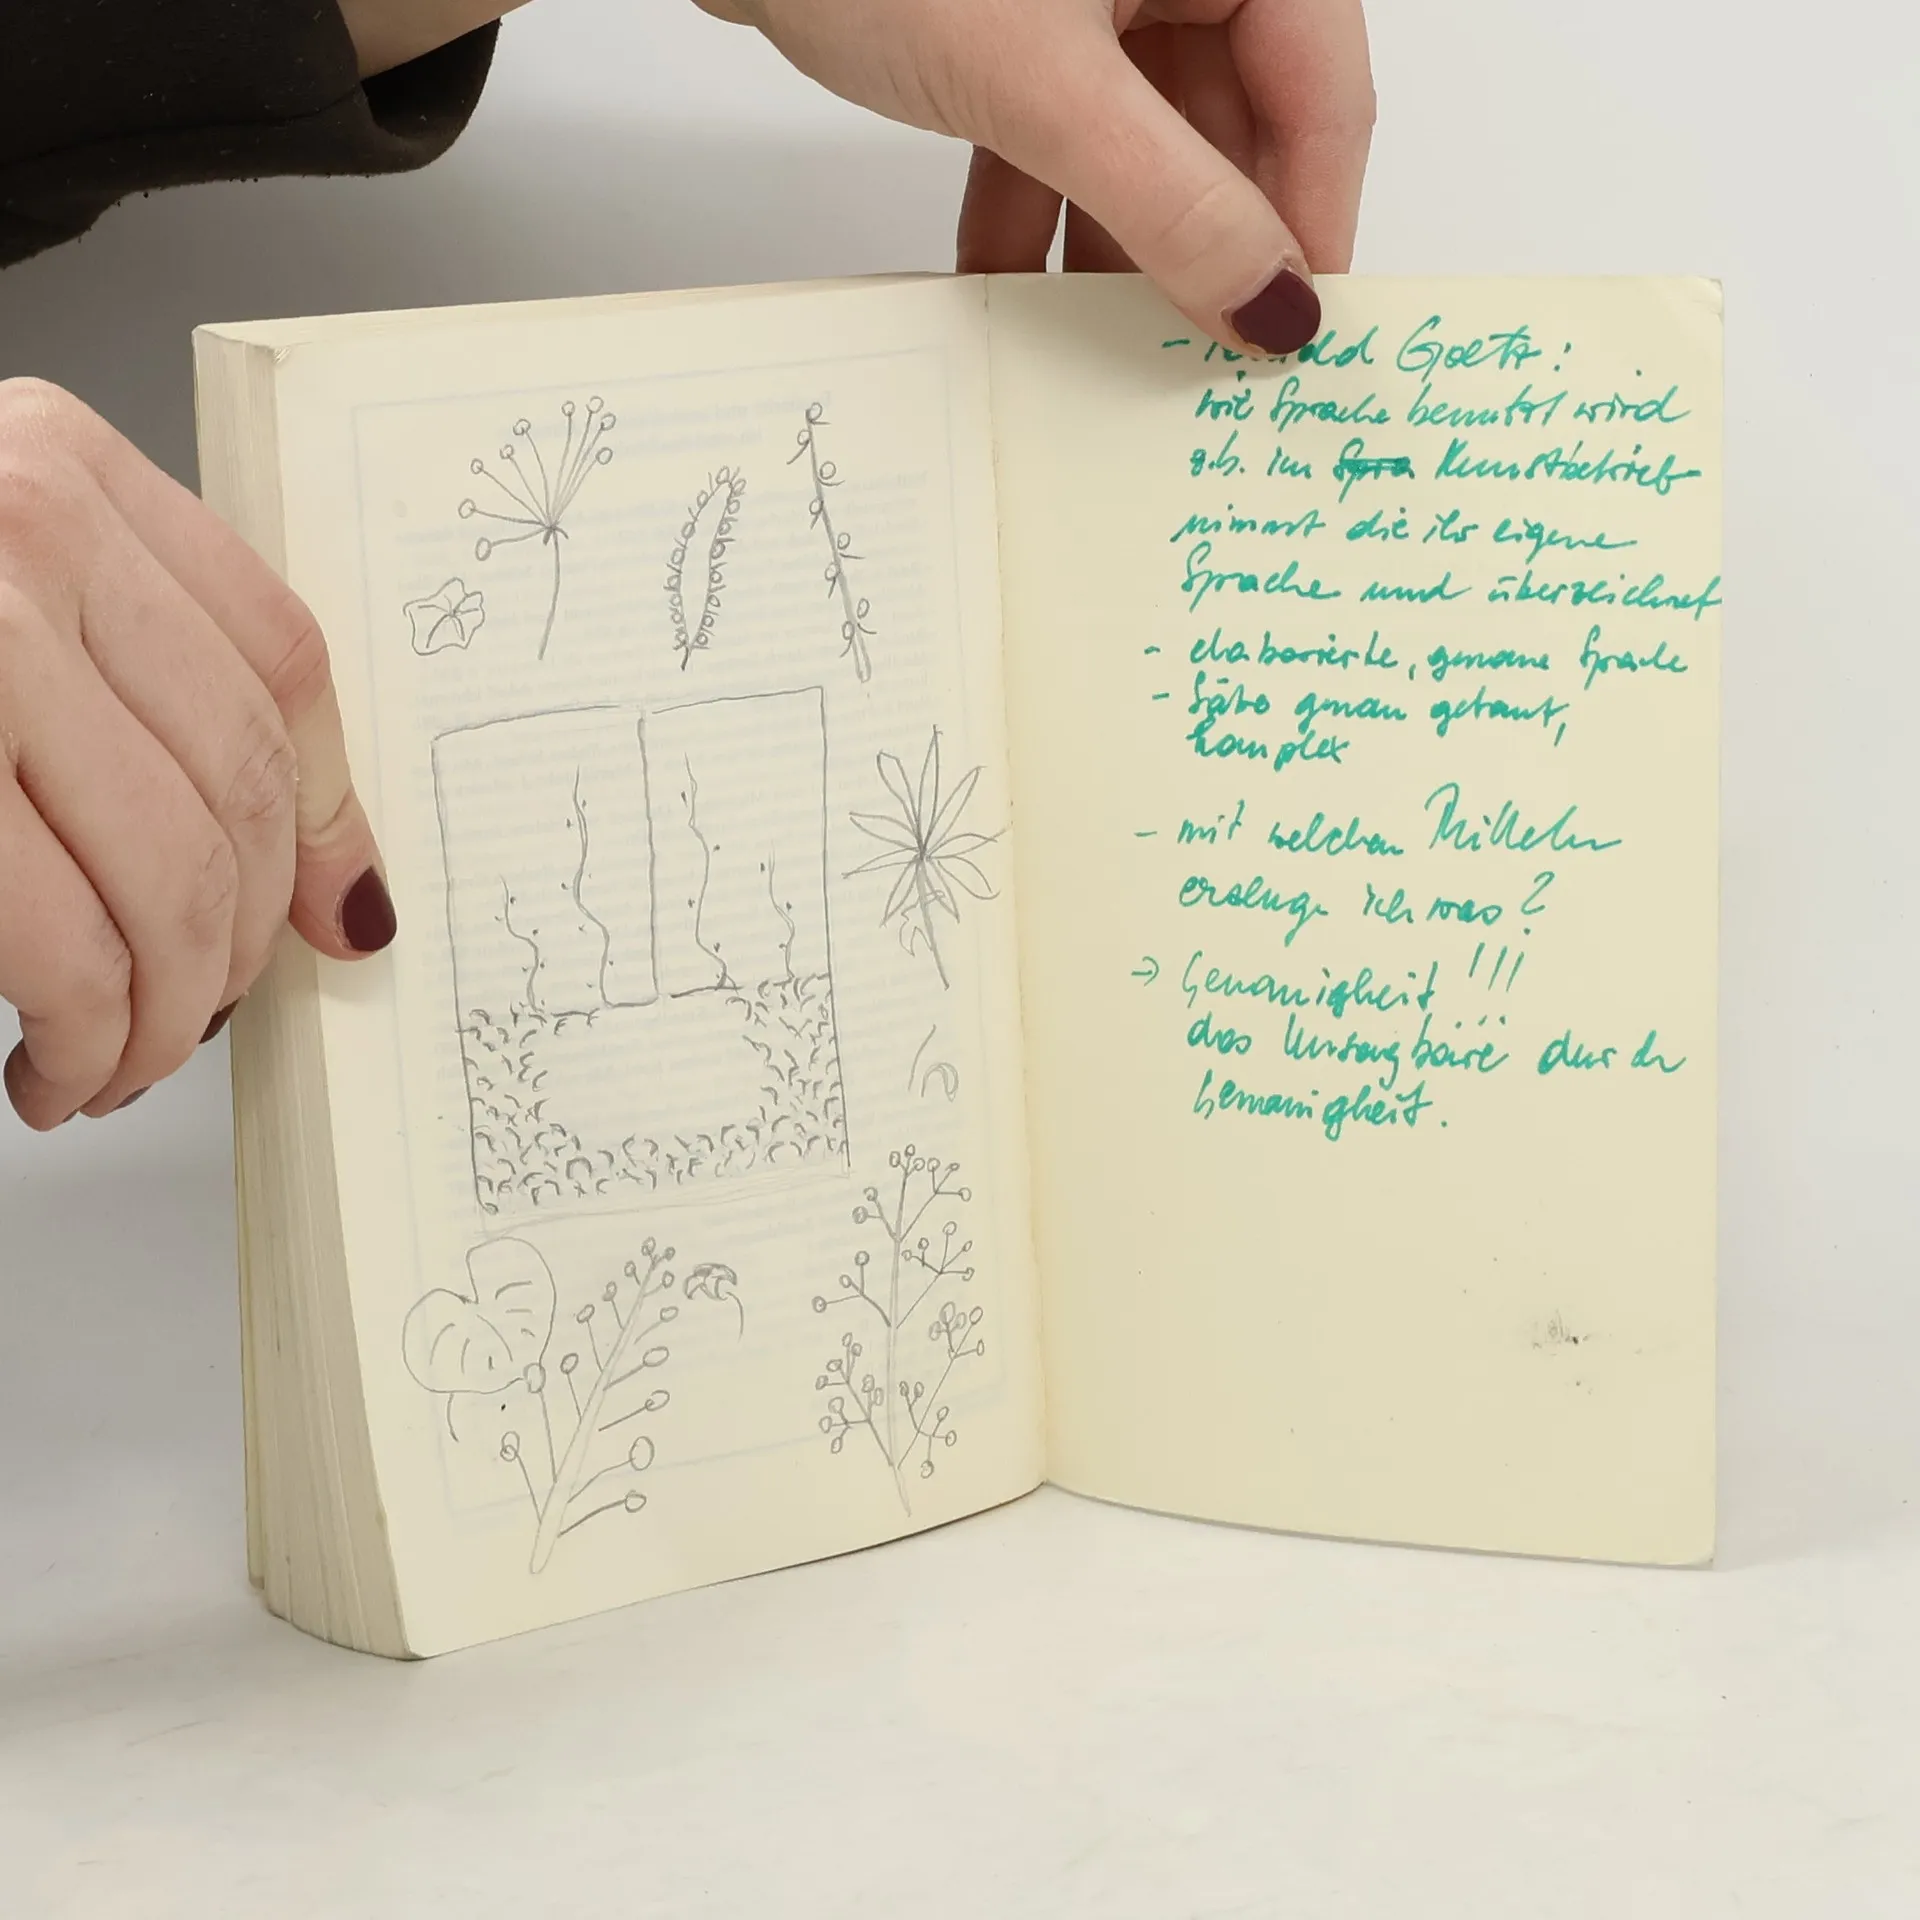 - Rainald Goetz:
wie Sprache benutzt wird
z.b. im Spra Kunstbetrieb
nimmt die ihr eigene
Sprache und überzeichnet
- elaborierte, genaue Sprache
- Sätze genau gebaut,
komplex
- mit welchen Mitteln
erzeuge ich was?
→ Genauigkeit !!!
das Unsagbare durch
Genauigkeit.